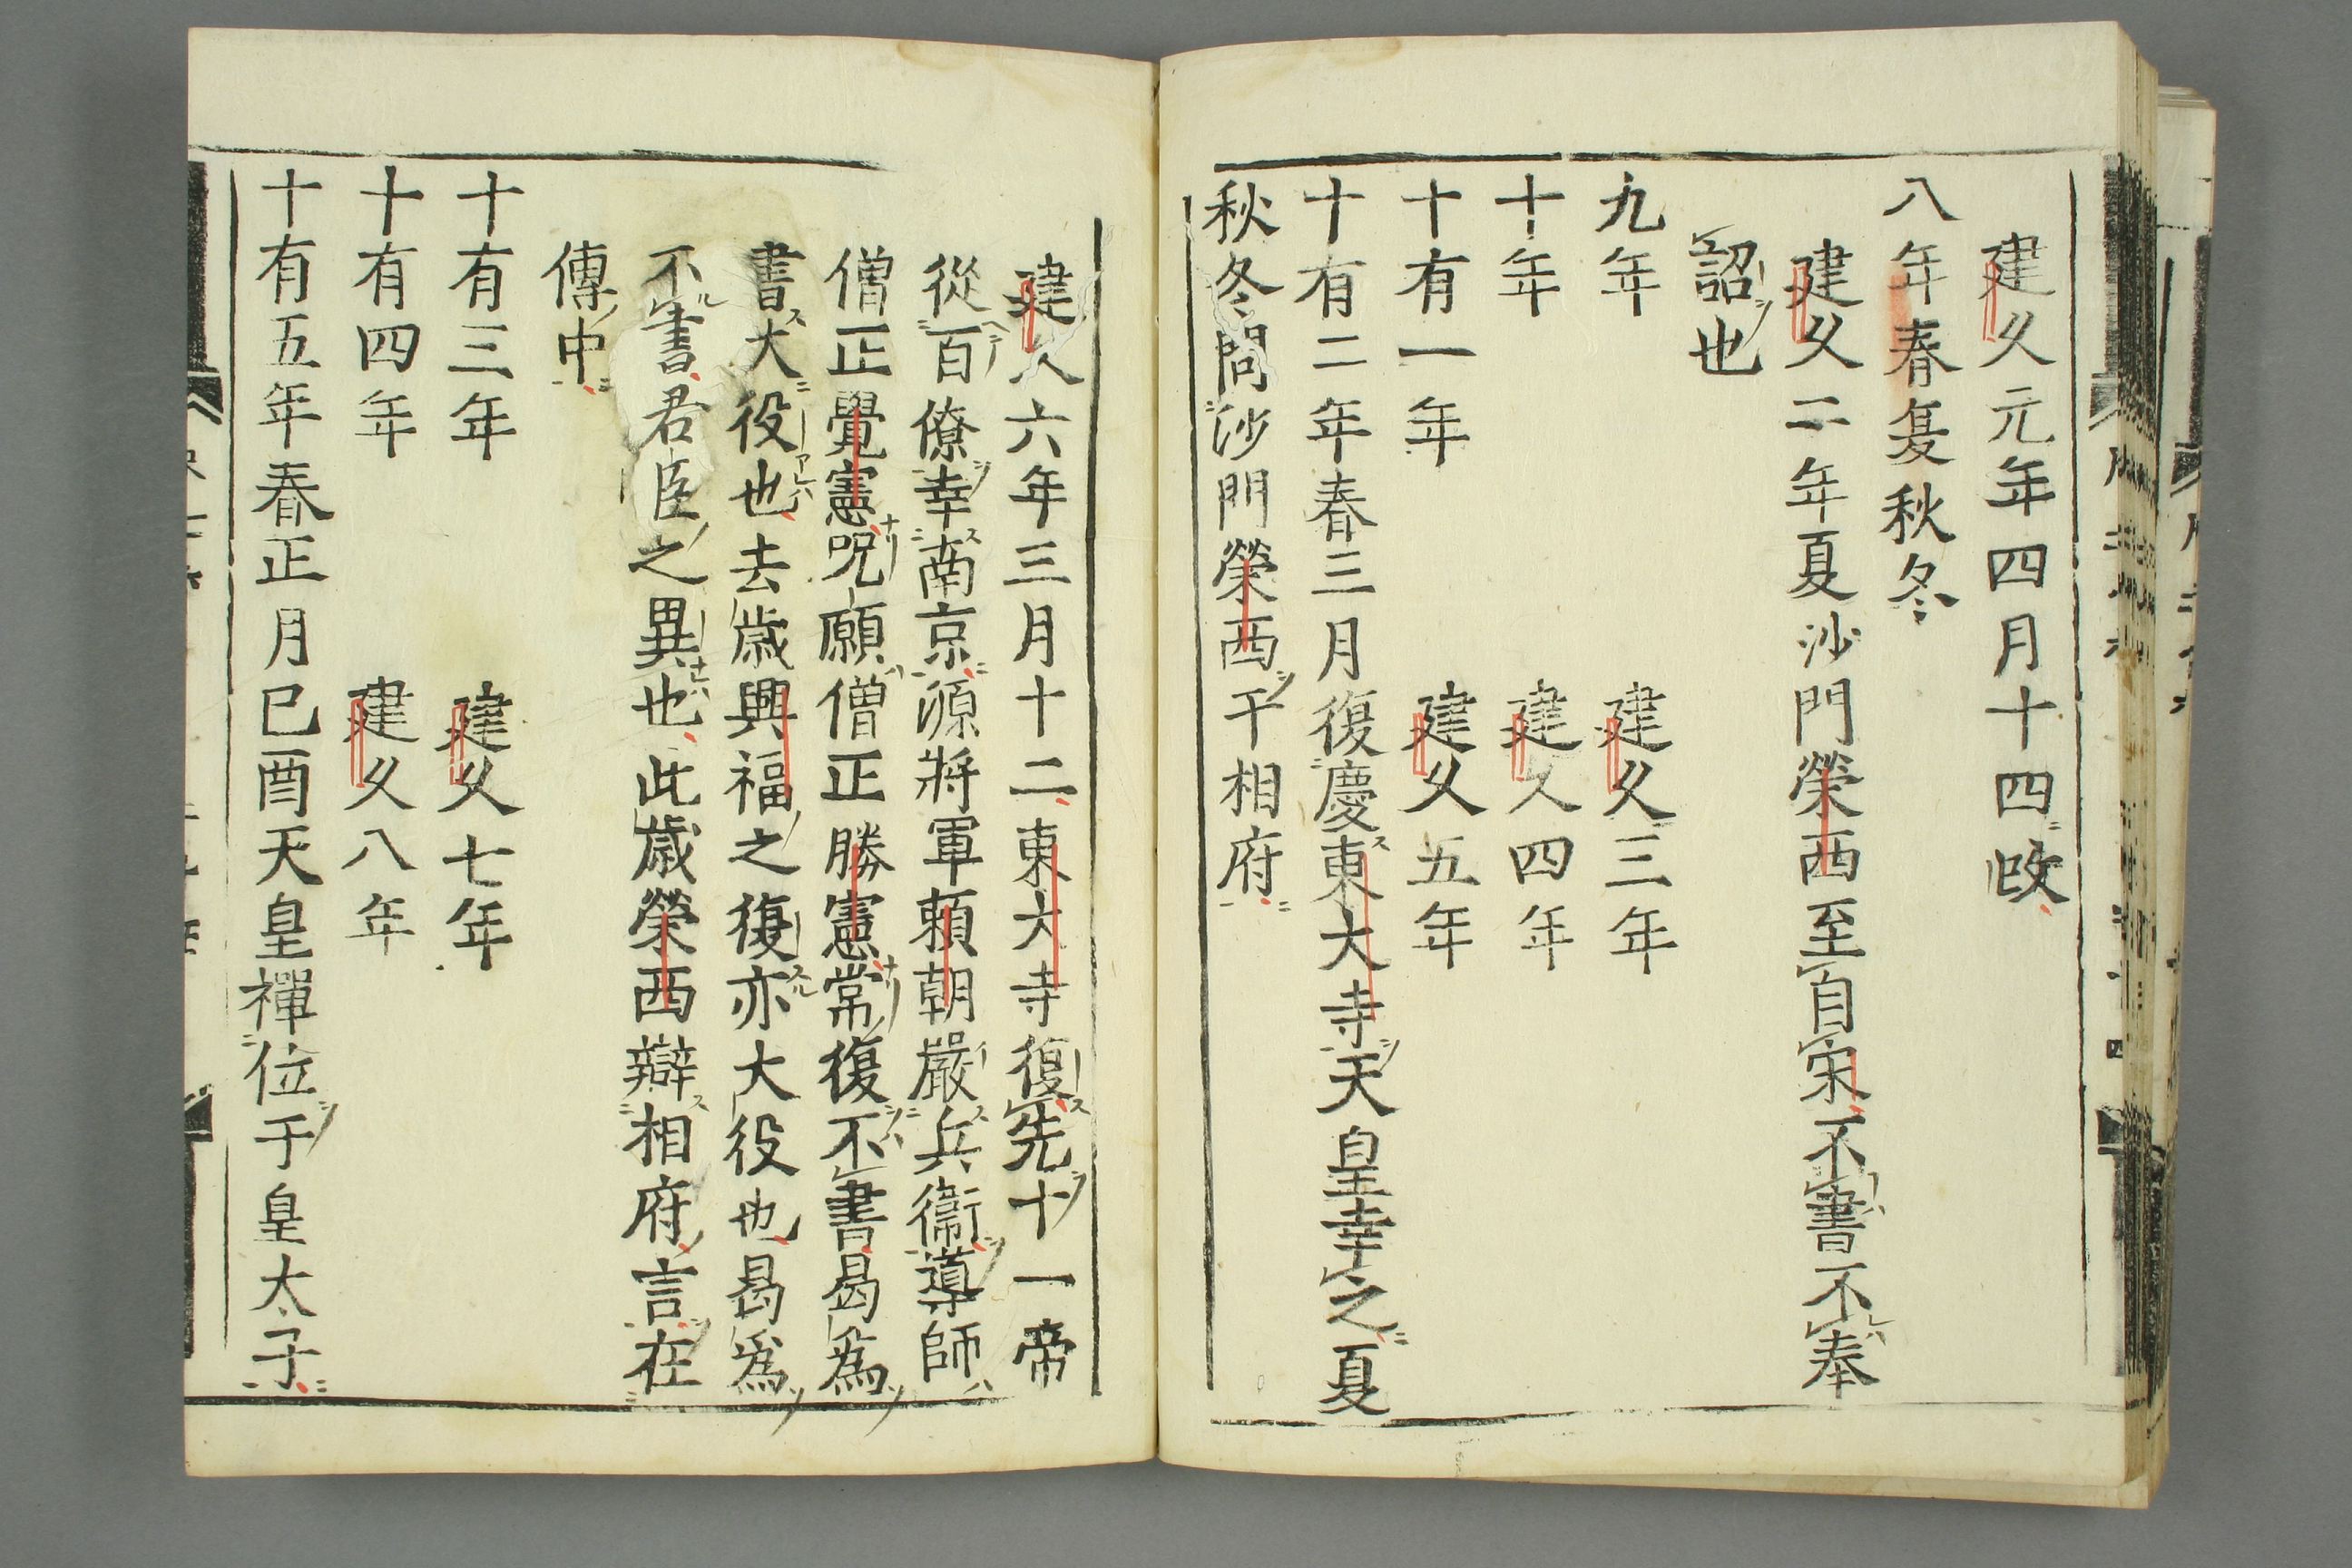 建久元年四月十四改
八年春夏秋冬
建久二年夏沙門榮西至自宋不書不奉
詔也
九年　建久三年
十年　建久四年
十有一年　建久五年
十有二年春三月復慶東大寺天皇幸之夏
秋冬問沙門榮西于相府
建久六年三月十二東大寺復先十一帝
從百僚幸南京源將軍頼朝嚴兵衞導師
僧正覺憲咒願僧正勝憲常復不書曷爲
書大役也去歳興福之復亦大役也曷爲
不書君臣之異也此歳榮西辯相府言在
傳中
十有三年　建久七年
十有四年　建久八年
十有五年春正月巳酉天皇禪位于皇太子